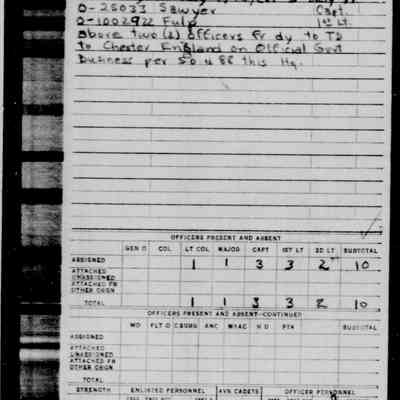 O-25033 Sawyer Capt.
O-1002922 Fulp 1st Lt.
above two (2) officers fr dy to TD
to Chester England on Official Govt
business per SO # 86 this Hq.
OFFICERS PRESENT AND ABSENT
GEN O COL LT COL MAJOR CAPT 1ST LT 2D LT SUBTOTAL
ASSIGNED 1 1 3 3 2 10
ATTACHED
UNASSIGNED
ATTACHED FR
OTHER ORGN
TOTAL 1 1 3 3 2 10
OFFICERS PRESENT AND ABSENT—CONTINUED
WO FLT O ANC WAAC H D PTA SUBTOTAL
ASSIGNED
ATTACHED
UNASSIGNED
ATTACHED FR
OTHER ORGN
TOTAL
STRENGTH ENLISTED PERSONNEL AVN CADETS OFFICER PERSONNEL